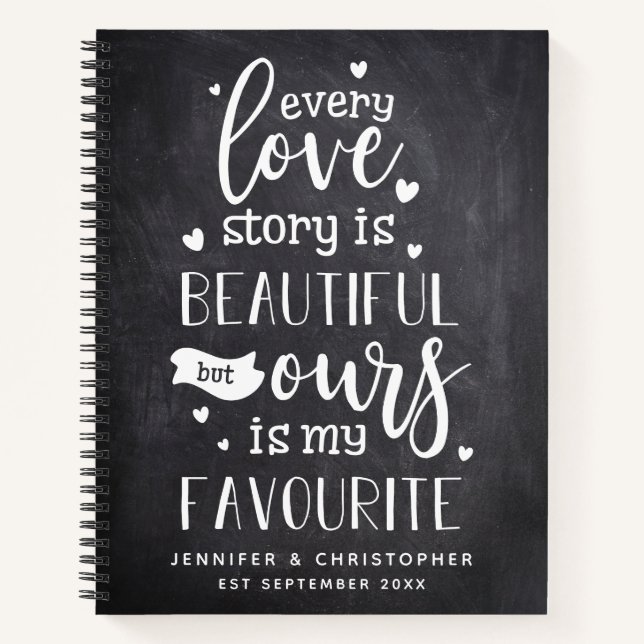 every
love
story is
BEAUTIFUL
but ours
is my
FAVOURITE
JENNIFER & CHRISTOPHER
EST SEPTEMBER 20XX